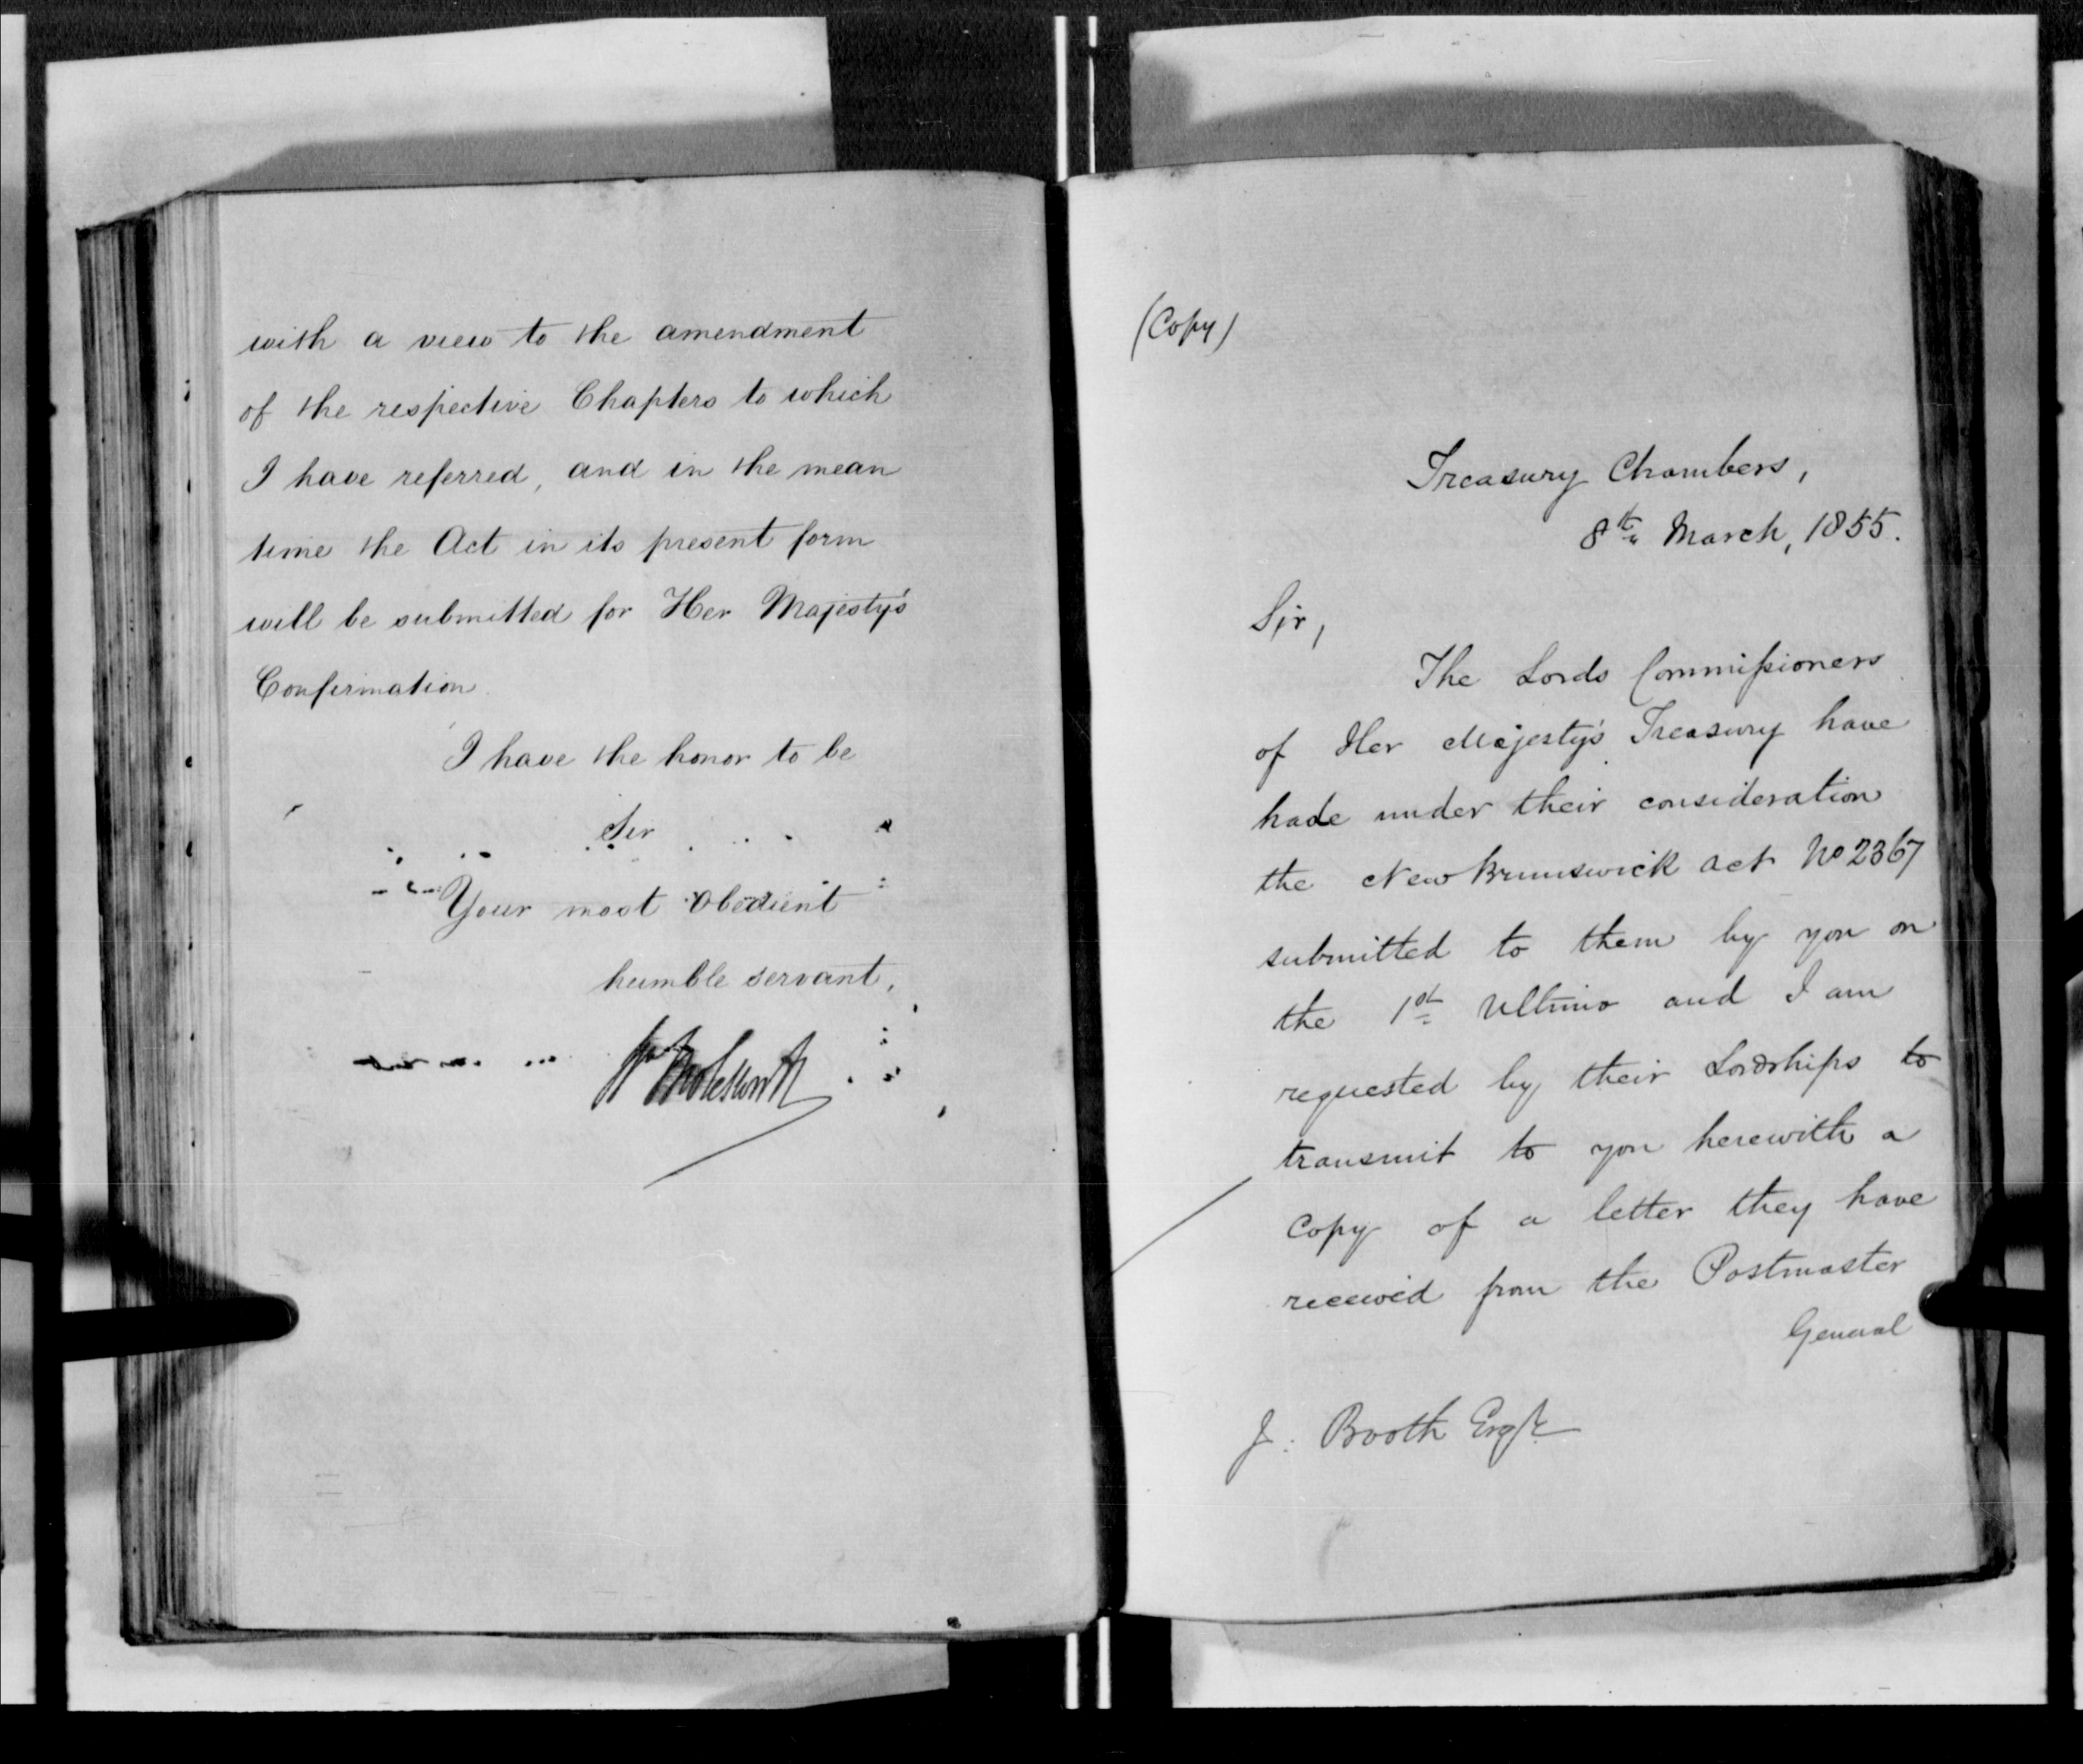 with a view to the amendment
of the respective Chapters to which
I have referred, and in the mean
time the Act in its present form
will be submitted for Her Majesty's
Confirmation.
I have the honor to be
Sir
Your most obedient
humble servant,
Wm Molesworth
(Copy)
Treasury Chambers,
8th March, 1855.
Sir,
The Lords Commissioners
of Her Majesty's Treasury have
hade under their consideration
the New Brunswick act No 2367
submitted to them by you on
the 1st Ultimo and I am
requested by their Lordships to
transmit to you herewith a
Copy of a letter they have
received from the Postmaster
General
J. Booth Esqre